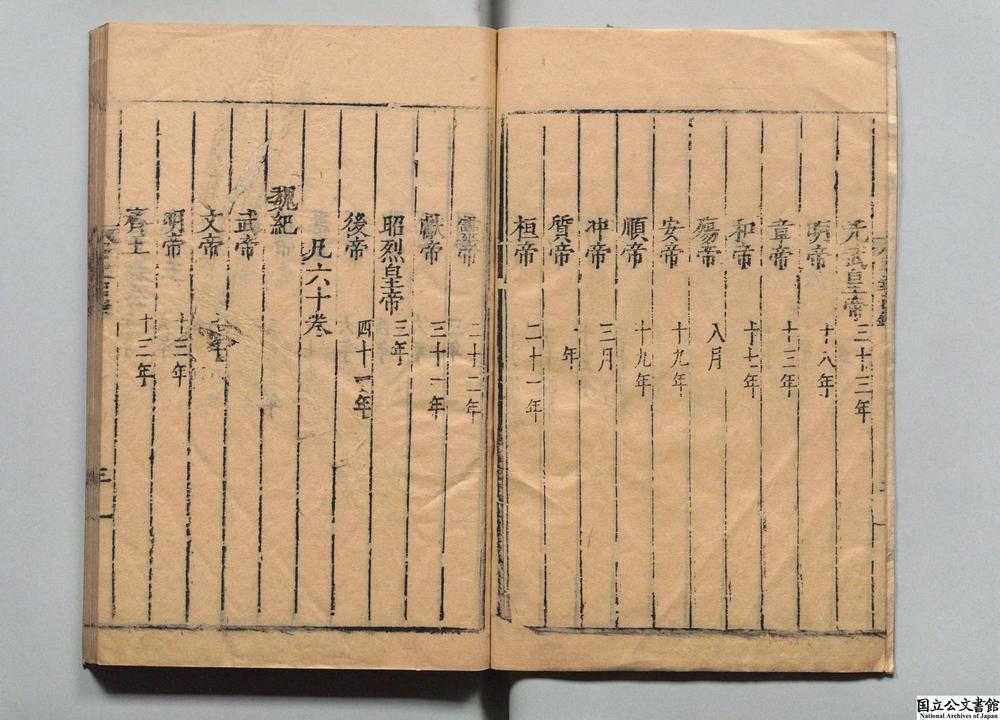 光武皇帝 三十三年
明帝 十八年
章帝 十三年
和帝 十七年
殤帝 八月
安帝 十九年
順帝 十九年
冲帝 三月
質帝 一年
桓帝 二十一年
靈帝 二十二年
獻帝 三十一年
昭烈皇帝 三年
後帝 四十一年
凡六十卷
魏紀
武帝
文帝 七年
明帝 十三年
齊王 十三年
三
国立公文書館
National Archives of Japan